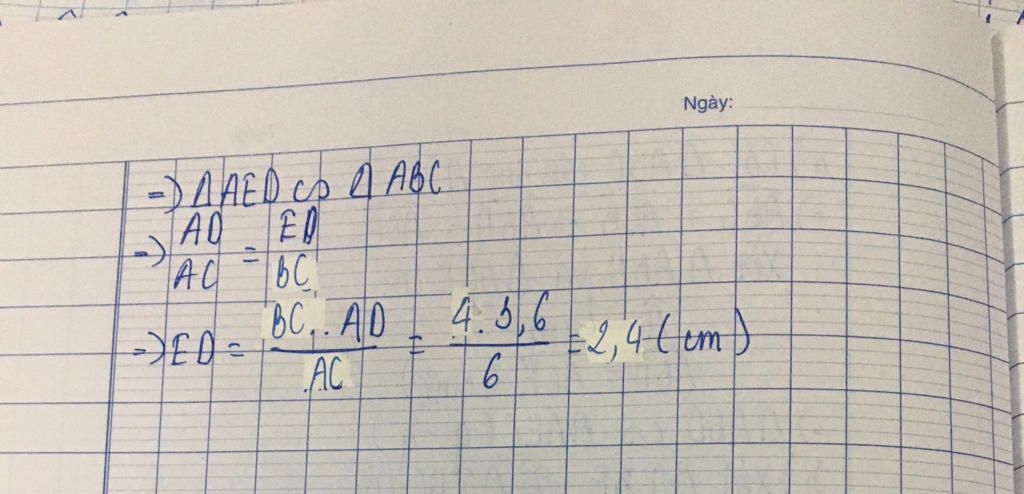 Ngày:
=) ΔAED ∽ ΔABC
=) AD/AC = ED/BC
=) ED = BC.AD/AC = 4.3,6/6 = 2,4 (cm)